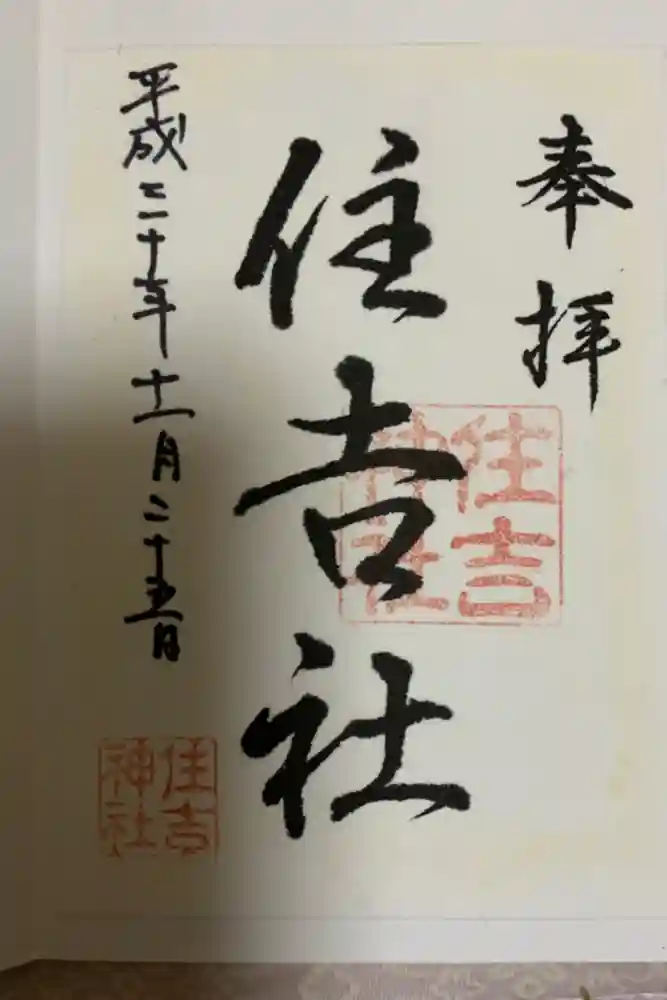 奉拝
住吉社
平成三十年十一月二十五日
住吉
神社
住吉
神社